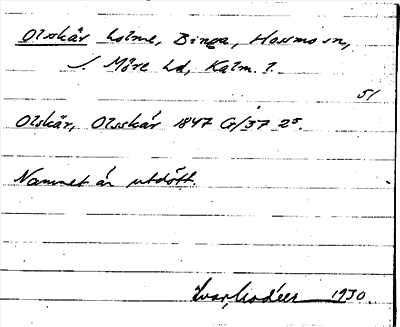 Olsskär holme, Binga, Hossmo sn,
S. Möre hd, Kalm. l.
51
Olskär, Olsskär 1847 G/37 25.
Namnet är utdött.
Ivar Modéer 1930.